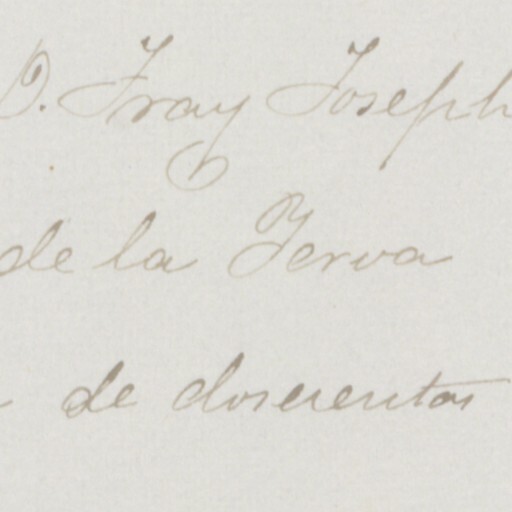 D. Fray Joseph
de la Yerva
de doscientos